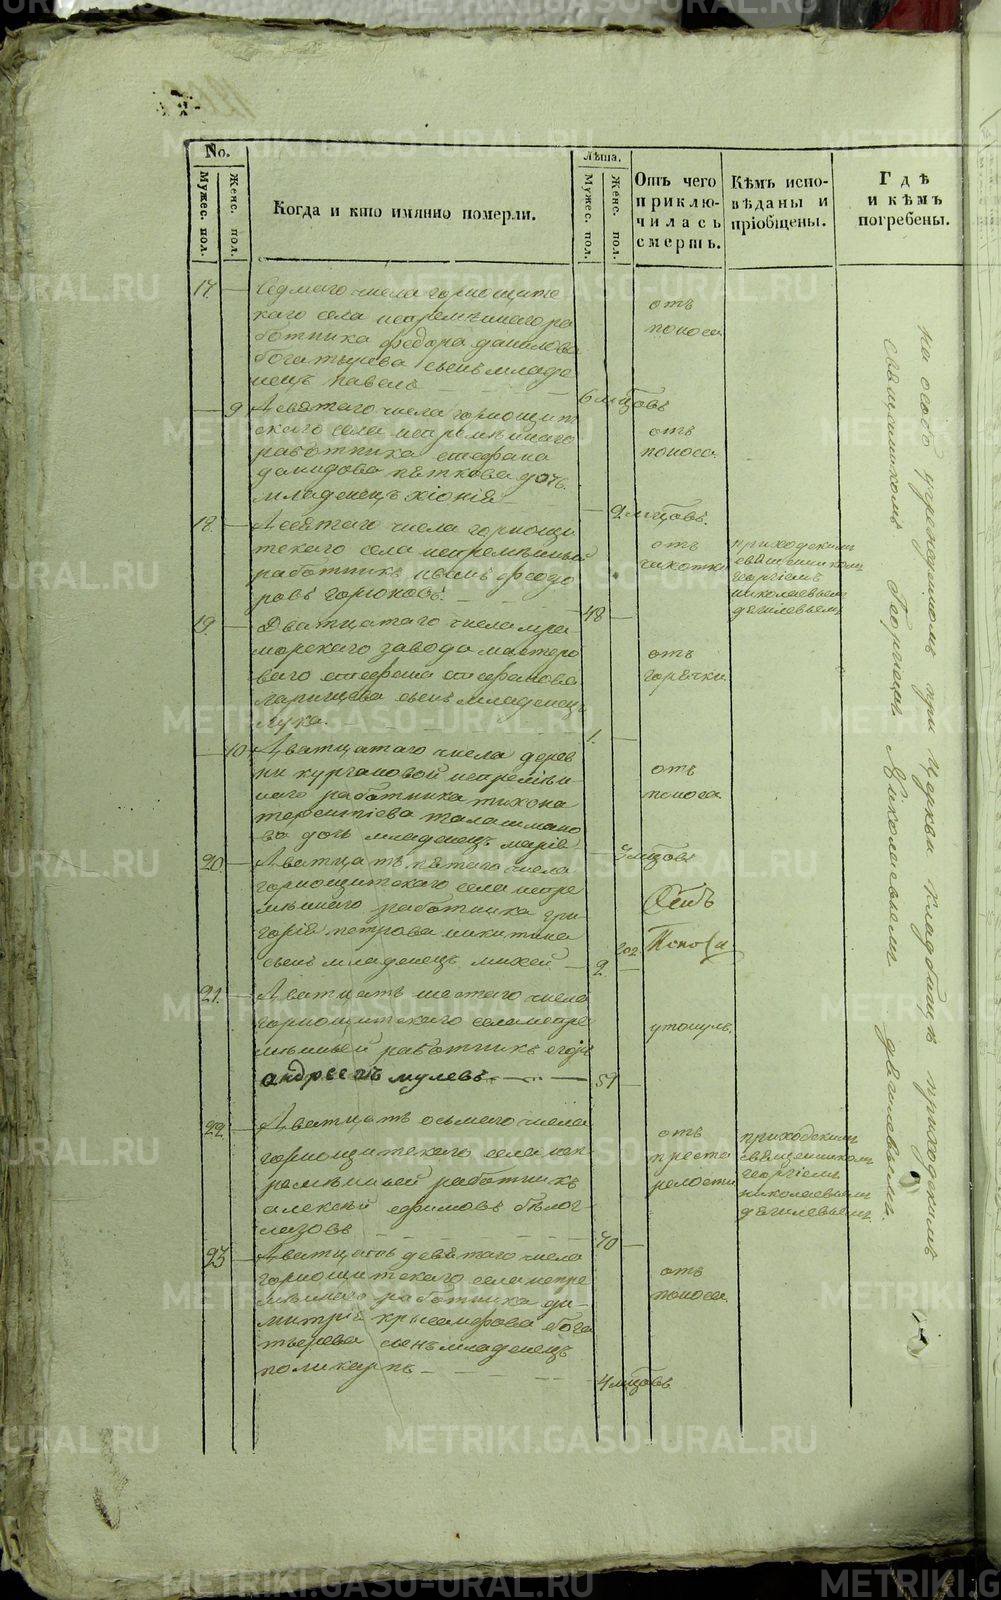 No.
Мужес. пол.
Женс. пол.
Когда и кто имянно померли.
Лѣта.
Мужес. пол.
Женс. пол.
Отъ чего приклю- чилась смерть.
Кѣмъ испо- вѣданы и пріобщены.
Гдѣ и кѣмъ погребены.
17.
Седмаго числа горнощитс
каго села непремѣннаго ра
ботника федора данилова
богатырева сынъ младе
нецъ павелъ
6 мцовъ
отъ
поноса
9
Девятаго числа горнощит
скаго села непремѣннаго
работника стефана
давидова пѣткова дочь
младенецъ хіонія
9 мцовъ.
отъ
поноса.
18.
Десятаго числа горнощи
тскаго села непремѣнный
работникъ феодо
ровъ горюновъ.
48
отъ
чихотки
приходскимъ
священникомъ
георгіемъ
николаевымъ
дягилевымъ
19.
Дватцатаго числа мра
морскаго завода мастеро
ваго стефана стефанова
сынъ младенецъ
лука.
1.
отъ
горячки.
10
Дватцатаго числа дерев
ни кургановой непремѣн
наго работника тихона
терентіева талашмано
ва дочь младенецъ марія
мцовъ
отъ
поноса.
20.
Дватцать пятаго числа
горнощитскаго села непре
мѣннаго работника гри
горія петрова никитина
сынъ младенецъ михей
2
год.
Отъ
Поноса
21.
Дватцать шестаго числа
горнощитскаго села непре
мѣнный работникъ егоръ
андреевъ мулевъ
51
утонулъ.
22.
Дватцать осьмаго числа
горнощитскаго села неп
ремѣнный работникъ
алексѣй ефимовъ бѣлог
лазовъ
70
отъ
преста
релости
приходскимъ
священникомъ
георгіемъ
николаевымъ
дягилевымъ.
23
Дватцать девятаго числа
горнощитскаго села непре
мѣннаго работника ди-
митрія хрисанфова бога
тырева сынъ младенецъ
поликарпъ
4 мцовъ
отъ
поноса.
на особо учрежденномъ при церкви кладбищѣ приходскимъ
священникомъ Георгіемъ Николаевымъ дягилевымъ.
METRIKI.GASO-URAL.RU